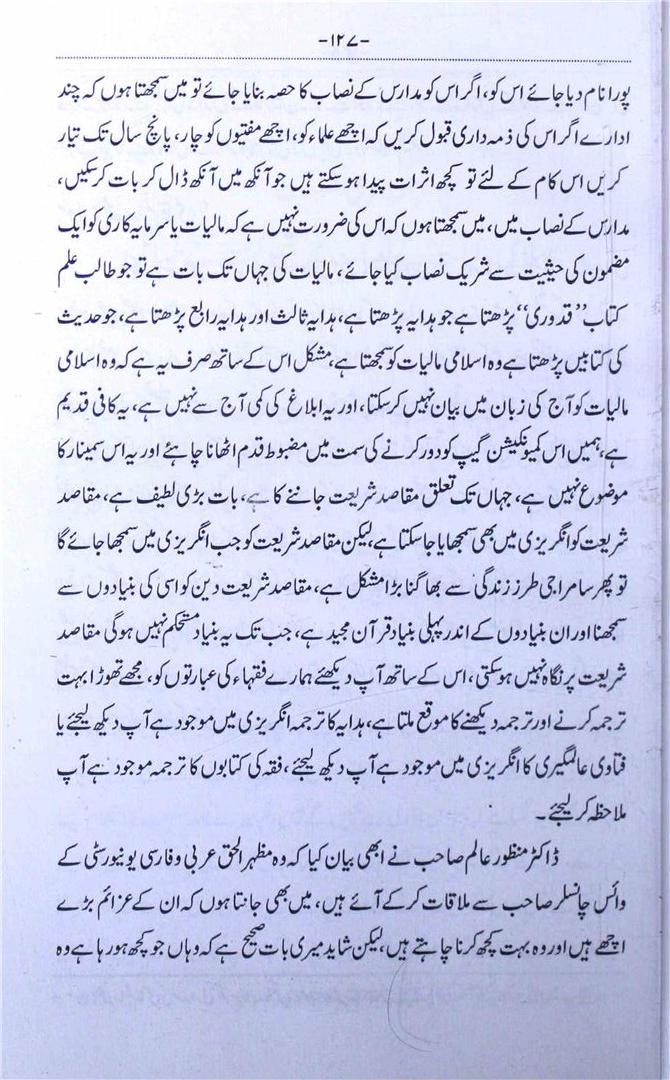 -۱۲۷-
پورا نام دیا جائے اس کو، اگر اس کو مدارس کے نصاب کا حصہ بنایا جائے تو میں سمجھتا ہوں کہ چند
ادارے اگر اس کی ذمہ داری قبول کریں کہ اچھے علماء کو، اچھے مفتیوں کو چار، پانچ سال تک تیار
کریں اس کام کے لئے تو کچھ اثرات پیدا ہو سکتے ہیں جو آنکھ میں آنکھ ڈال کر بات کر سکیں،
مدارس کے نصاب میں، میں سمجھتا ہوں کہ اس کی ضرورت نہیں ہے کہ مالیات یا سرمایہ کاری کو ایک
مضمون کی حیثیت سے شریک نصاب کیا جائے، مالیات کی جہاں تک بات ہے تو جو طالب علم
کتاب ”قدوری“ پڑھتا ہے جو ہدایہ پڑھتا ہے، ہدایہ ثالث اور ہدایہ رابع پڑھتا ہے، جو حدیث
کی کتابیں پڑھتا ہے وہ اسلامی مالیات کو سمجھتا ہے، مشکل اس کے ساتھ صرف یہ ہے کہ وہ اسلامی
مالیات کو آج کی زبان میں بیان نہیں کر سکتا، اور یہ ابلاغ کی کمی آج سے نہیں ہے، یہ کافی قدیم
ہے، ہمیں اس کمیونکیشن گیپ کو دور کرنے کی سمت میں مضبوط قدم اٹھانا چاہئے اور یہ اس سمینار کا
موضوع نہیں ہے، جہاں تک تعلق مقاصد شریعت جاننے کا ہے، بات بڑی لطیف ہے، مقاصد
شریعت کو انگریزی میں بھی سمجھایا جا سکتا ہے، لیکن مقاصد شریعت کو جب انگریزی میں سمجھا جائے گا
تو پھر سامراجی طرز زندگی سے بھاگنا بڑا مشکل ہے، مقاصد شریعت دین کو اسی کی بنیادوں سے
سمجھنا اور ان بنیادوں کے اندر پہلی بنیاد قرآن مجید ہے، جب تک یہ بنیاد مستحکم نہیں ہوگی مقاصد
شریعت پر نگاہ نہیں ہو سکتی، اس کے ساتھ آپ دیکھئے ہمارے فقہاء کی عبارتوں کو، مجھے تھوڑا بہت
ترجمہ کرنے اور ترجمہ دیکھنے کا موقع ملتا ہے، ہدایہ کا ترجمہ انگریزی میں موجود ہے آپ دیکھ لیجئے یا
فتاوی عالمگیری کا انگریزی میں موجود ہے آپ دیکھ لیجئے، فقہ کی کتابوں کا ترجمہ موجود ہے آپ
ملاحظہ کر لیجئے۔
ڈاکٹر منظور عالم صاحب نے ابھی بیان کیا کہ وہ مظہر الحق عربی و فارسی یونیورسٹی کے
وائس چانسلر صاحب سے ملاقات کر کے آئے ہیں، میں بھی جانتا ہوں کہ ان کے عزائم بڑے
اچھے ہیں اور وہ بہت کچھ کرنا چاہتے ہیں، لیکن شاید میری بات صحیح ہے کہ وہاں جو کچھ ہو رہا ہے وہ